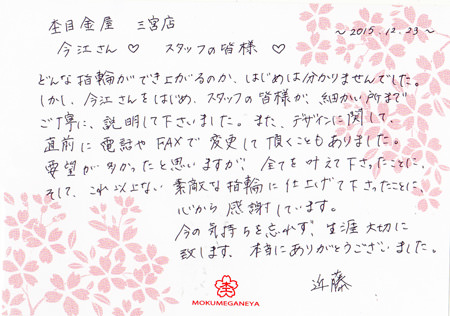 杢目金屋 三宮店
今江さん♡ スタッフの皆様♡
～2015.12.23～
どんな指輪ができ上がるのか、はじめは分かりませんでした。
しかし、今江さんをはじめ、スタッフの皆様が、細かい所まで
ご丁寧に、説明して下さいました。また、デザインに関して、
直前に電話やFAXで変更して頂くこともありました。
要望が多かったと思いますが、全てを叶えて下さったことに、
そして、これ以上ない素敵な指輪に仕上げて下さったことに、
心から感謝しています。
今の気持ちを忘れず、生涯大切に
致します。本当にありがとうございました。
近藤
MOKUMEGANEYA